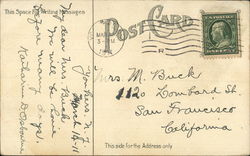 This Space For Writing Messages
POST CARD
Yonkers, N.Y.
March 16-11
My dear Mrs. Buck.
We will be home
before many days.
Katharine D. Osborne
Mrs. M. Buck
1120 Lombard St.
San Francisco
California
This side for the Address only